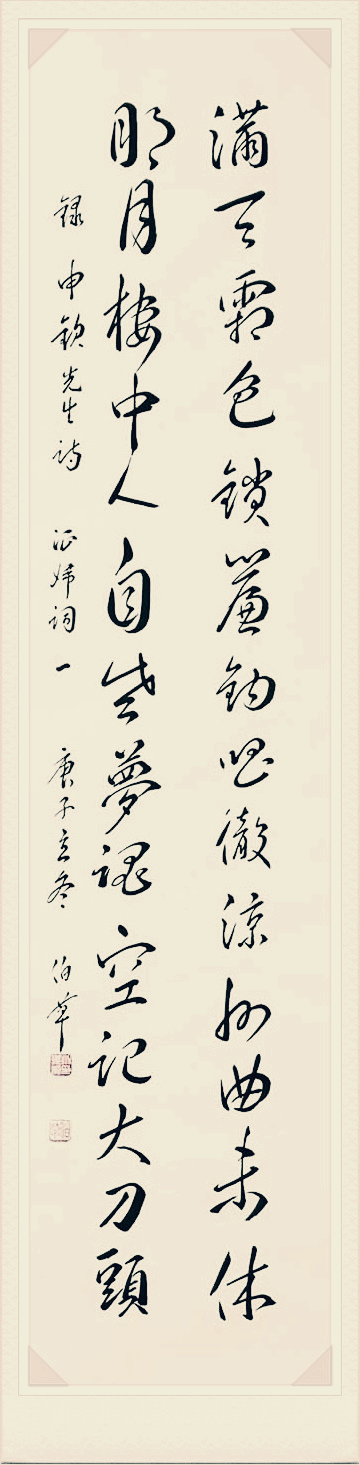 滿天霜色鎖簾鉤唱徹涼州曲未休
明月樓中人自老夢魂空記大刀頭
録 申欽先生詩 征婦詞一 庚子立冬 伯華